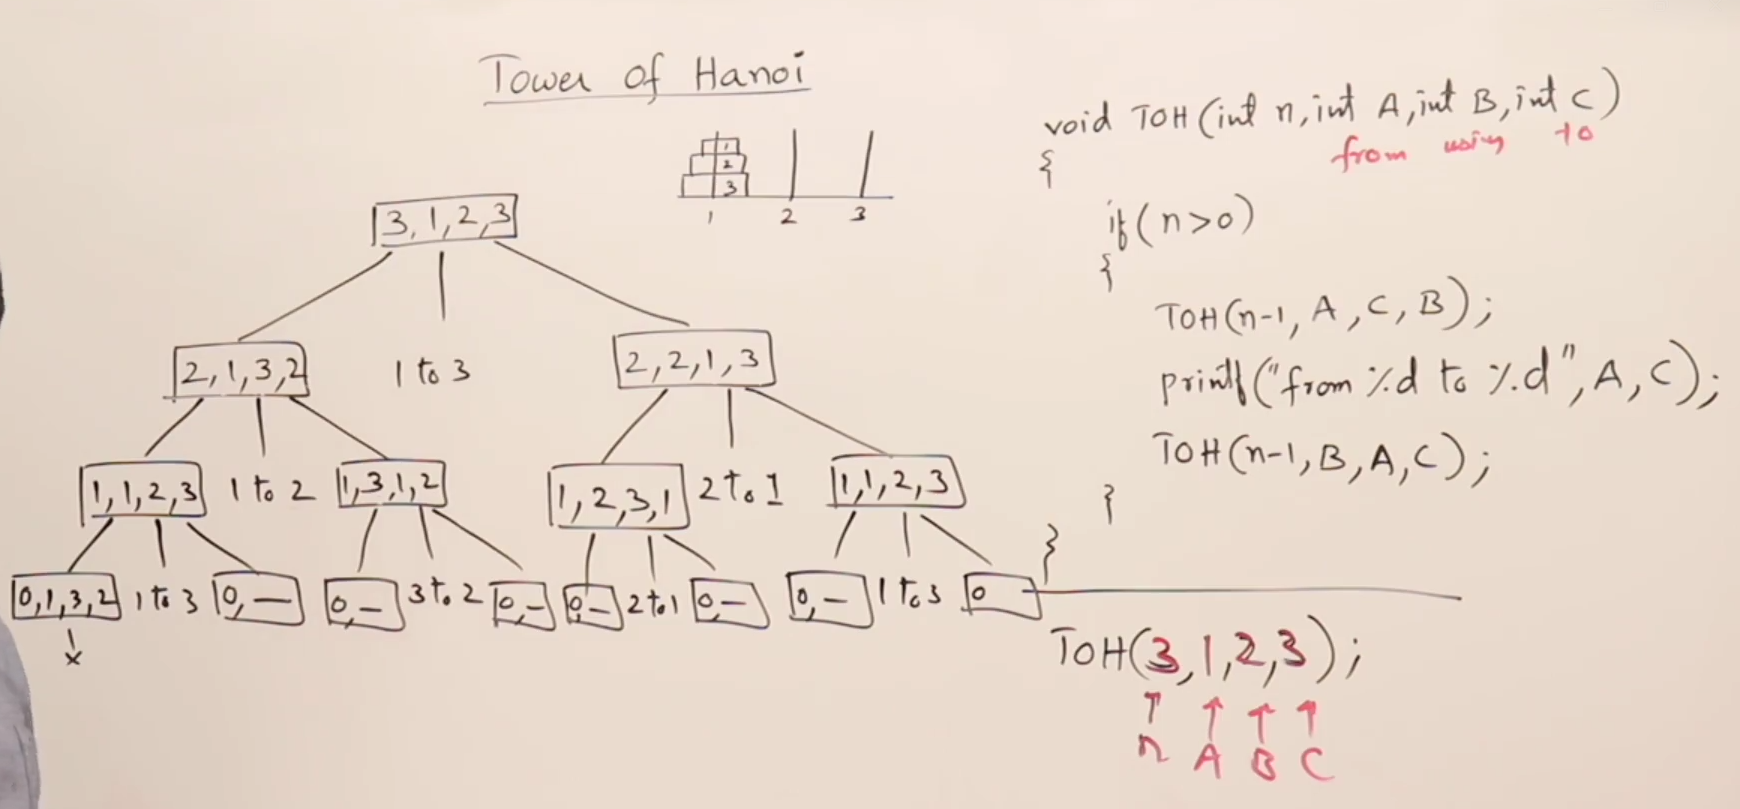 Tower of Hanoi
1
2
3
1 2 3
3,1,2,3
2,1,3,2 1 to 3 2,2,1,3
1,1,2,3 1 to 2 1,3,1,2 1,2,3,1 2 to 1 1,1,2,3
0,1,3,2 1 to 3 0,— 0,— 3 to 2 0,— 0,— 2 to 1 0,— 0,— 1 to 3 0
x
void TOH(int n,int A,int B,int C)
from using to
{
if(n>0)
{
TOH(n-1, A, C, B);
printf("from %d to %d", A, C);
TOH(n-1, B, A, C);
}
}
TOH(3,1,2,3);
n A B C